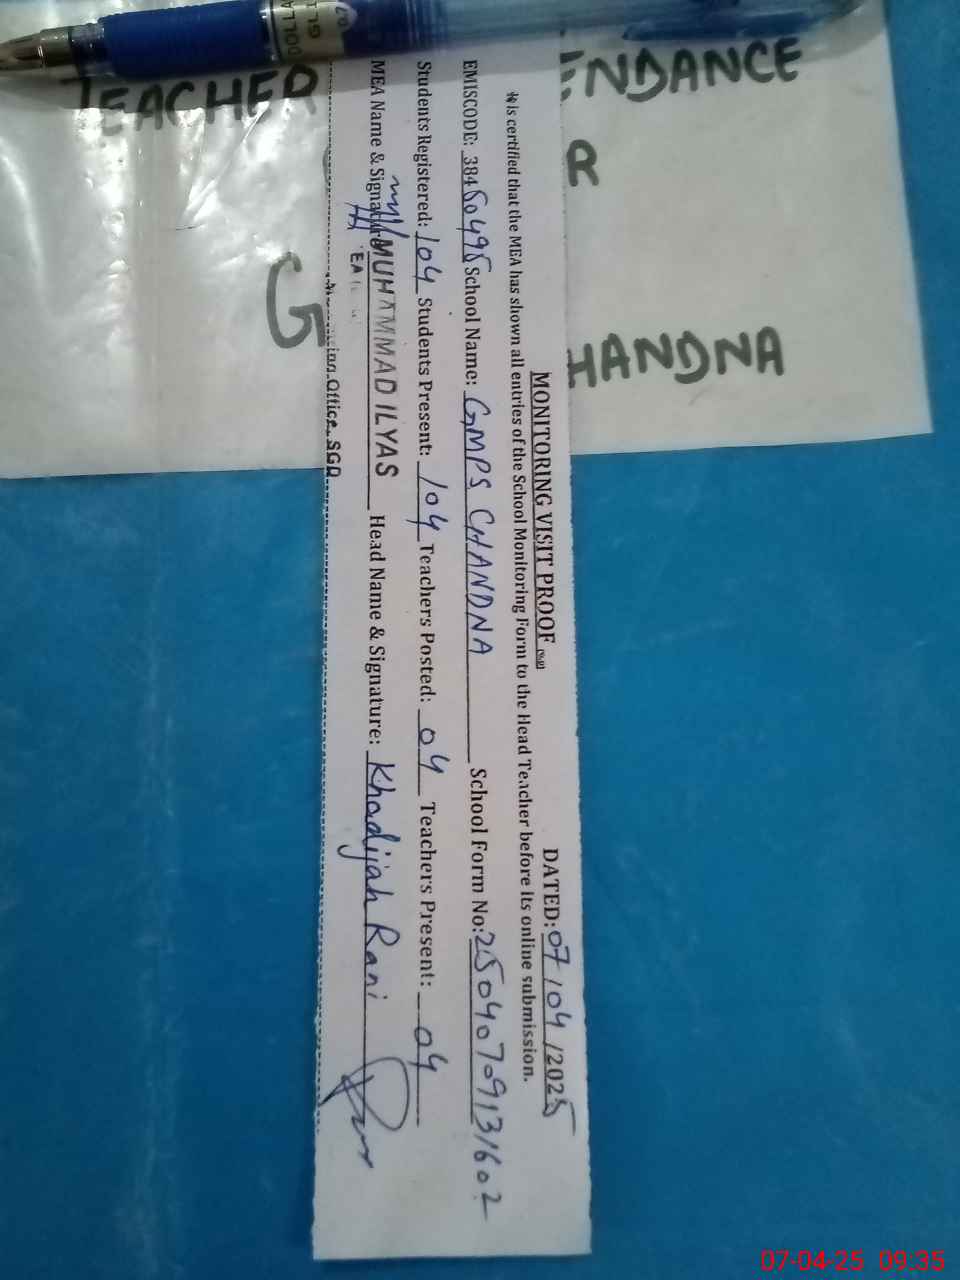 TEACHER
ENDANCE
R
G
HANDNA
MONITORING VISIT PROOF
DATED: 07/04/2025
It is certified that the MEA has shown all entries of the School Monitoring Form to the Head Teacher before its online submission.
EMISCODE: 38450495 School Name: GMPS CHANDNA School Form No: 25040709131602
Students Registered: 104 Students Present: 104 Teachers Posted: 04 Teachers Present: 04
MEA Name & Signature MUHAMMAD ILYAS Head Name & Signature: Khadijah Rani
Office, SGD
07-04-25 09:35